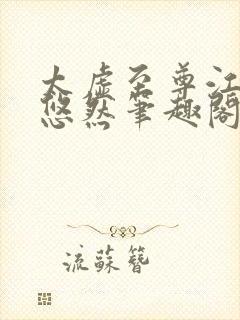 太虚至尊江
悠然笔趣阁
流蘇簪